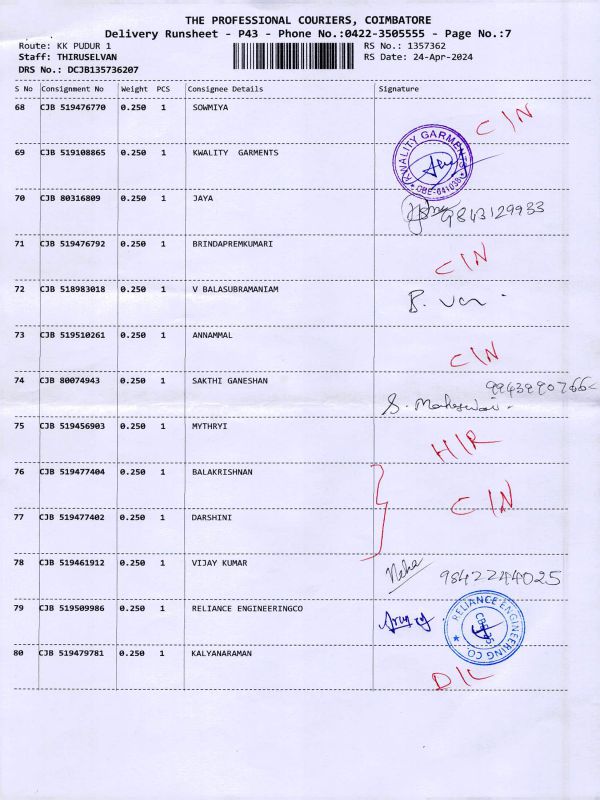 THE PROFESSIONAL COURIERS, COIMBATORE
Delivery Runsheet - P43 - Phone No.:0422-3505555 - Page No.:7
Route: KK PUDUR 1 RS No.: 1357362
Staff: THIRUSELVAN RS Date: 24-Apr-2024
DRS No.: DCJB135736207
S No Consignment No Weight PCS Consignee Details Signature
68 CJB 519476770 0.250 1 SOWMIYA C/N
69 CJB 519108865 0.250 1 KWALITY GARMENTS KWALITY GARMENTS CBE-641038
70 CJB 80316809 0.250 1 JAYA 9843129933
71 CJB 519476792 0.250 1 BRINDAPREMKUMARI C/N
72 CJB 518983018 0.250 1 V BALASUBRAMANIAM B.
73 CJB 519510261 0.250 1 ANNAMMAL C/N
74 CJB 80074943 0.250 1 SAKTHI GANESHAN S. Maheswari.
75 CJB 519456903 0.250 1 MYTHRYI H/R
76 CJB 519477404 0.250 1 BALAKRISHNAN C/N
77 CJB 519477402 0.250 1 DARSHINI
78 CJB 519461912 0.250 1 VIJAY KUMAR 9842244025
79 CJB 519509986 0.250 1 RELIANCE ENGINEERINGCO RELIANCE ENGINEERING CO.
80 CJB 519479781 0.250 1 KALYANARAMAN D/L